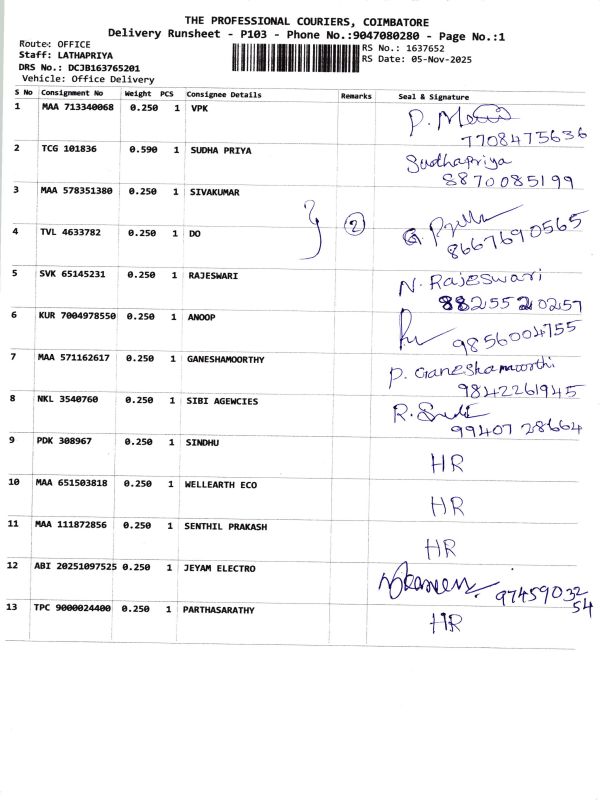 THE PROFESSIONAL COURIERS, COIMBATORE
Delivery Runsheet - P103 - Phone No.:9047080280 - Page No.:1
Route: OFFICE
RS No.: 1637652
Staff: LATHAPRIYA
RS Date: 05-Nov-2025
DRS No.: DCJB163765201
Vehicle: Office Delivery
S No Consignment No Weight PCS Consignee Details Remarks Seal & Signature
1 MAA 713340068 0.250 1 VPK P.
7708475636
2 TCG 101836 0.590 1 SUDHA PRIYA Sudhapriya
8870085199
3 MAA 578351380 0.250 1 SIVAKUMAR
4 TVL 4633782 0.250 1 DO 2 G.
8667690565
5 SVK 65145231 0.250 1 RAJESWARI N. Rajeswari
88255 20257
6 KUR 7004978550 0.250 1 ANOOP
9856004755
7 MAA 571162617 0.250 1 GANESHAMOORTHY P. Ganeshamoorthi
9842261945
8 NKL 3540760 0.250 1 SIBI AGEWCIES R.
99407 28664
9 PDK 308967 0.250 1 SINDHU HR
10 MAA 651503818 0.250 1 WELLEARTH ECO HR
11 MAA 111872856 0.250 1 SENTHIL PRAKASH HR
12 ABI 20251097525 0.250 1 JEYAM ELECTRO 97459032
54
13 TPC 9000024400 0.250 1 PARTHASARATHY HR